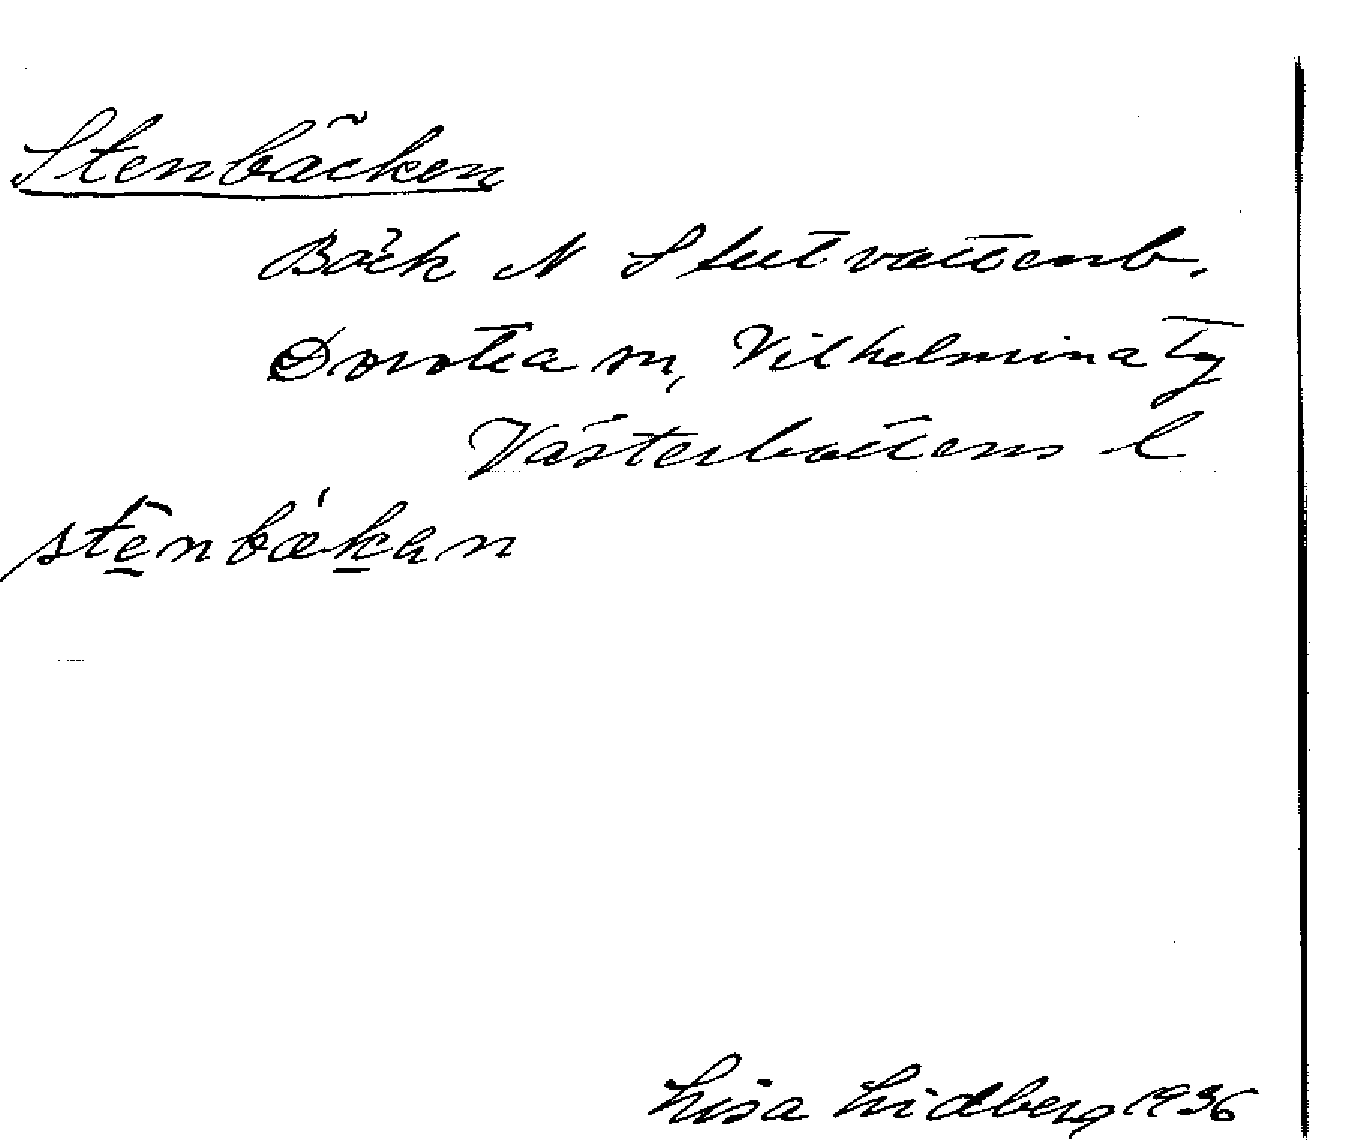 Stenbäcken
Bäck N Stutvattenb.
Dorotea sn, Vilhelmina tg
Västerbottens l
ste̲nbæ´k̲an
Lisa Lidberg 1936